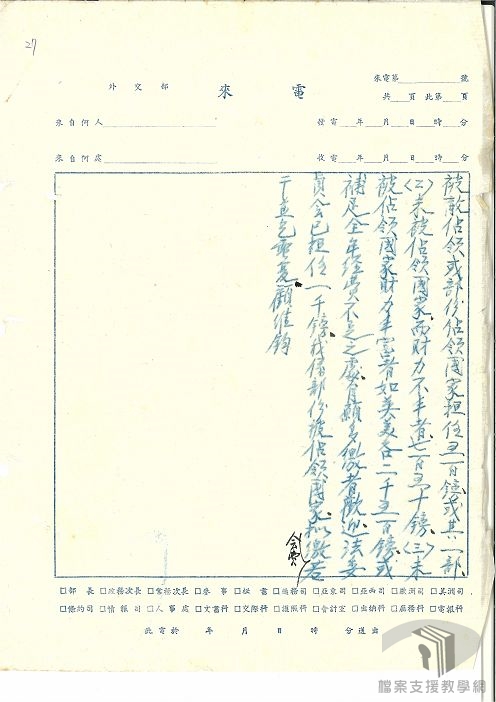 27
外交部
來電
來電第 號
共 頁 此第 頁
來自何人
發電 年 月 日 時 分
來自何處
收電 年 月 日 時 分
被敵佔領或部份佔領國家担任五百鎊或其一部
(二)未被佔領國家而財力不丰者七百五十鎊(三)未
被佔領國家財力丰富者如英美各二千五百鎊或
補足全年經費不足之處自願多繳者歡迎法委
員会已担任一千鎊我係部份被佔領國家拟繳若
干並乞電复顧維鈞
□部長 □政務次長 □常務次長 □參事 □秘書 □總務司 □亞東司 □亞西司 □歐洲司 □美洲司
□條約司 □情報司 □人事處 □文書科 □交際科 □護照科 □會計室 □出納科 □庶務科 □電報科
此電於 年 月 日 時 分送出
檔案支援教學網